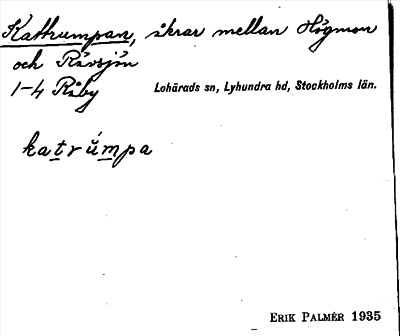 Kattrumpan, åkrar mellan Högmon
och Rävsjön
1-4 Råby Lohärads sn, Lyhundra hd, Stockholms län.
katrúmpa
ERIK PALMÉR 1935